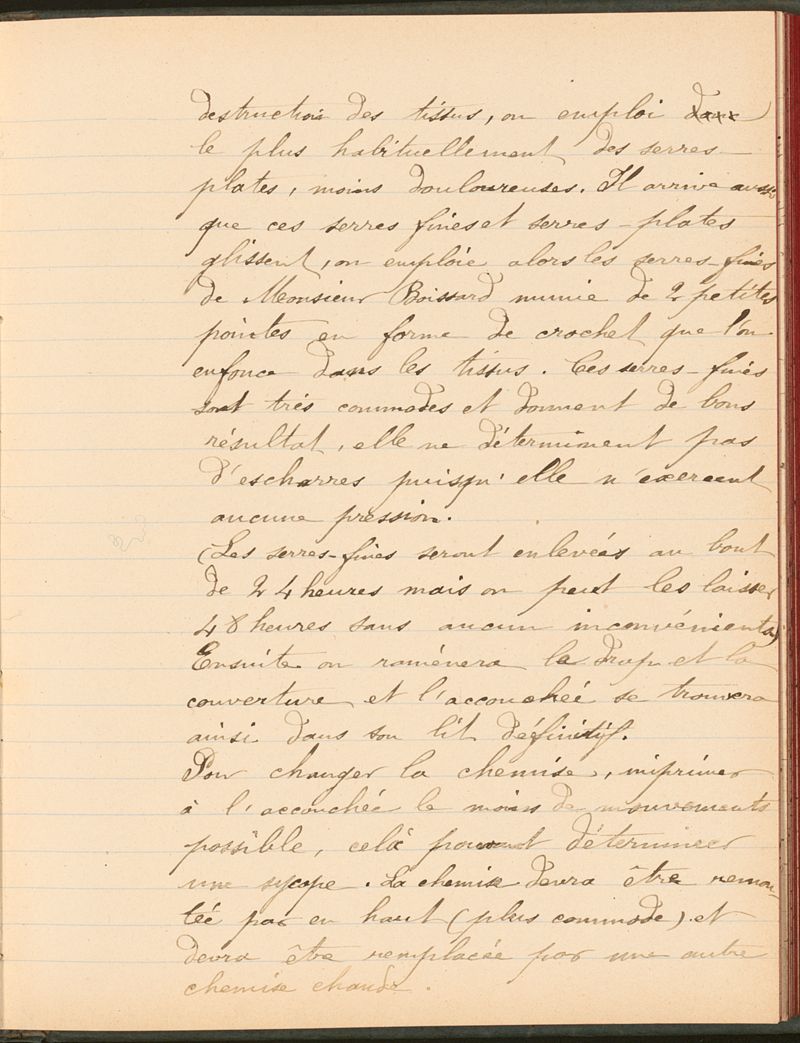 destruction des tissus, on emploi dans
le plus habituellement des serres
plates, moins douloureuses. Il arrive aussi
que ces serres fines et serres-plates
glissent, on emploie alors les serres-fines
de Monsieur Boissard munie de 2 petites
pointes en forme de crochet que l'on
enfonce dans les tissus. Ces serres-fines
sont très commodes et donnent de bons
résultat, elle ne déterminent pas
d'escharres puisqu'elle n'exercent
aucune pression.
(Les serres-fines seront enlevées au bout
de 24 heures mais on peut les laisser
48 heures sans aucun inconvénients)
Ensuite on ramènera le drap et la
couverture et l'accouchéé se trouvera
ainsi dans son lit définitif.
Pour changer la chemise, imprimer
à l'accouchée le moins de mouvements
possible, celà pouvant déterminer
une sycope. La chemise devra être remon-
téé par en haut (plus commode) et
devra être remplacée par une autre
chemise chaude.